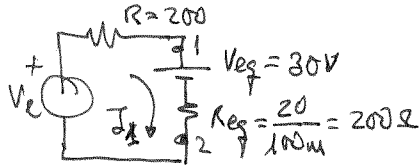 R=200
+
1
Ve
Veq = 30V
I1
Req = 20/100m = 200Ω
2